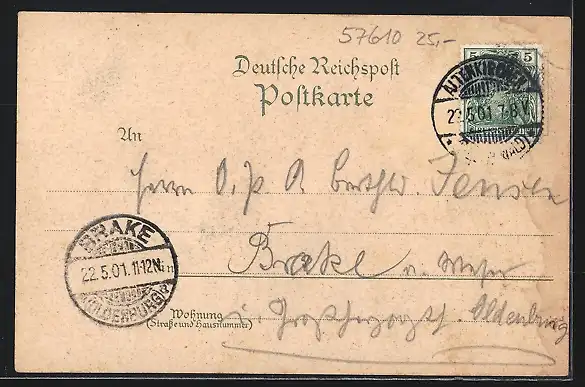 57610 25,-
Deutsche Reichspost
Postkarte
5 5
ALTENKIRCHEN
22.5.01. 7-8 V
WALD)
An
Herrn O. P. A. Jensen
BRAKE
22.5.01. 11-12 N
(OLDENBURG)
in Brake a. Weser
Wohnung
(Straße und Hausnummer)
in Großherzogth. Oldenburg